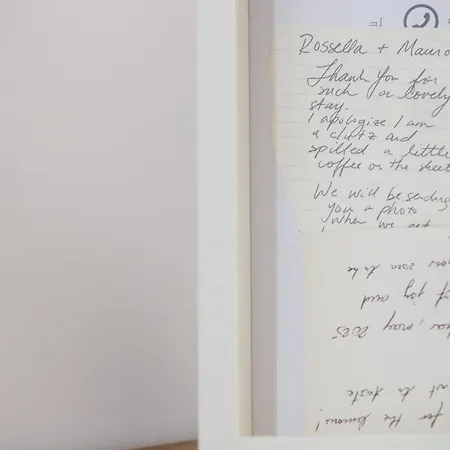 Rossella + Mauro
Thank You for
such a lovely
stay.
I apologize I am
a clutz and
spilled a little
coffee on the sheet
We will be sending
you a photo
when we get
for the lemons!
to taste
, may 2025
joy and
soon to be